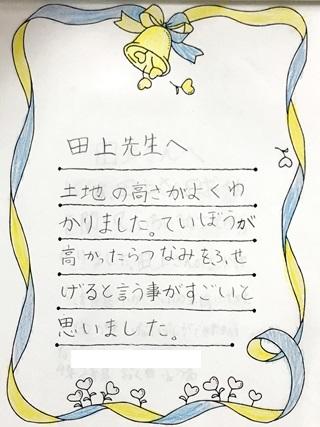 田上先生へ
土地の高さがよくわ
かりました。ていぼうが
高かったらつなみをふせ
げると言う事がすごいと
思いました。